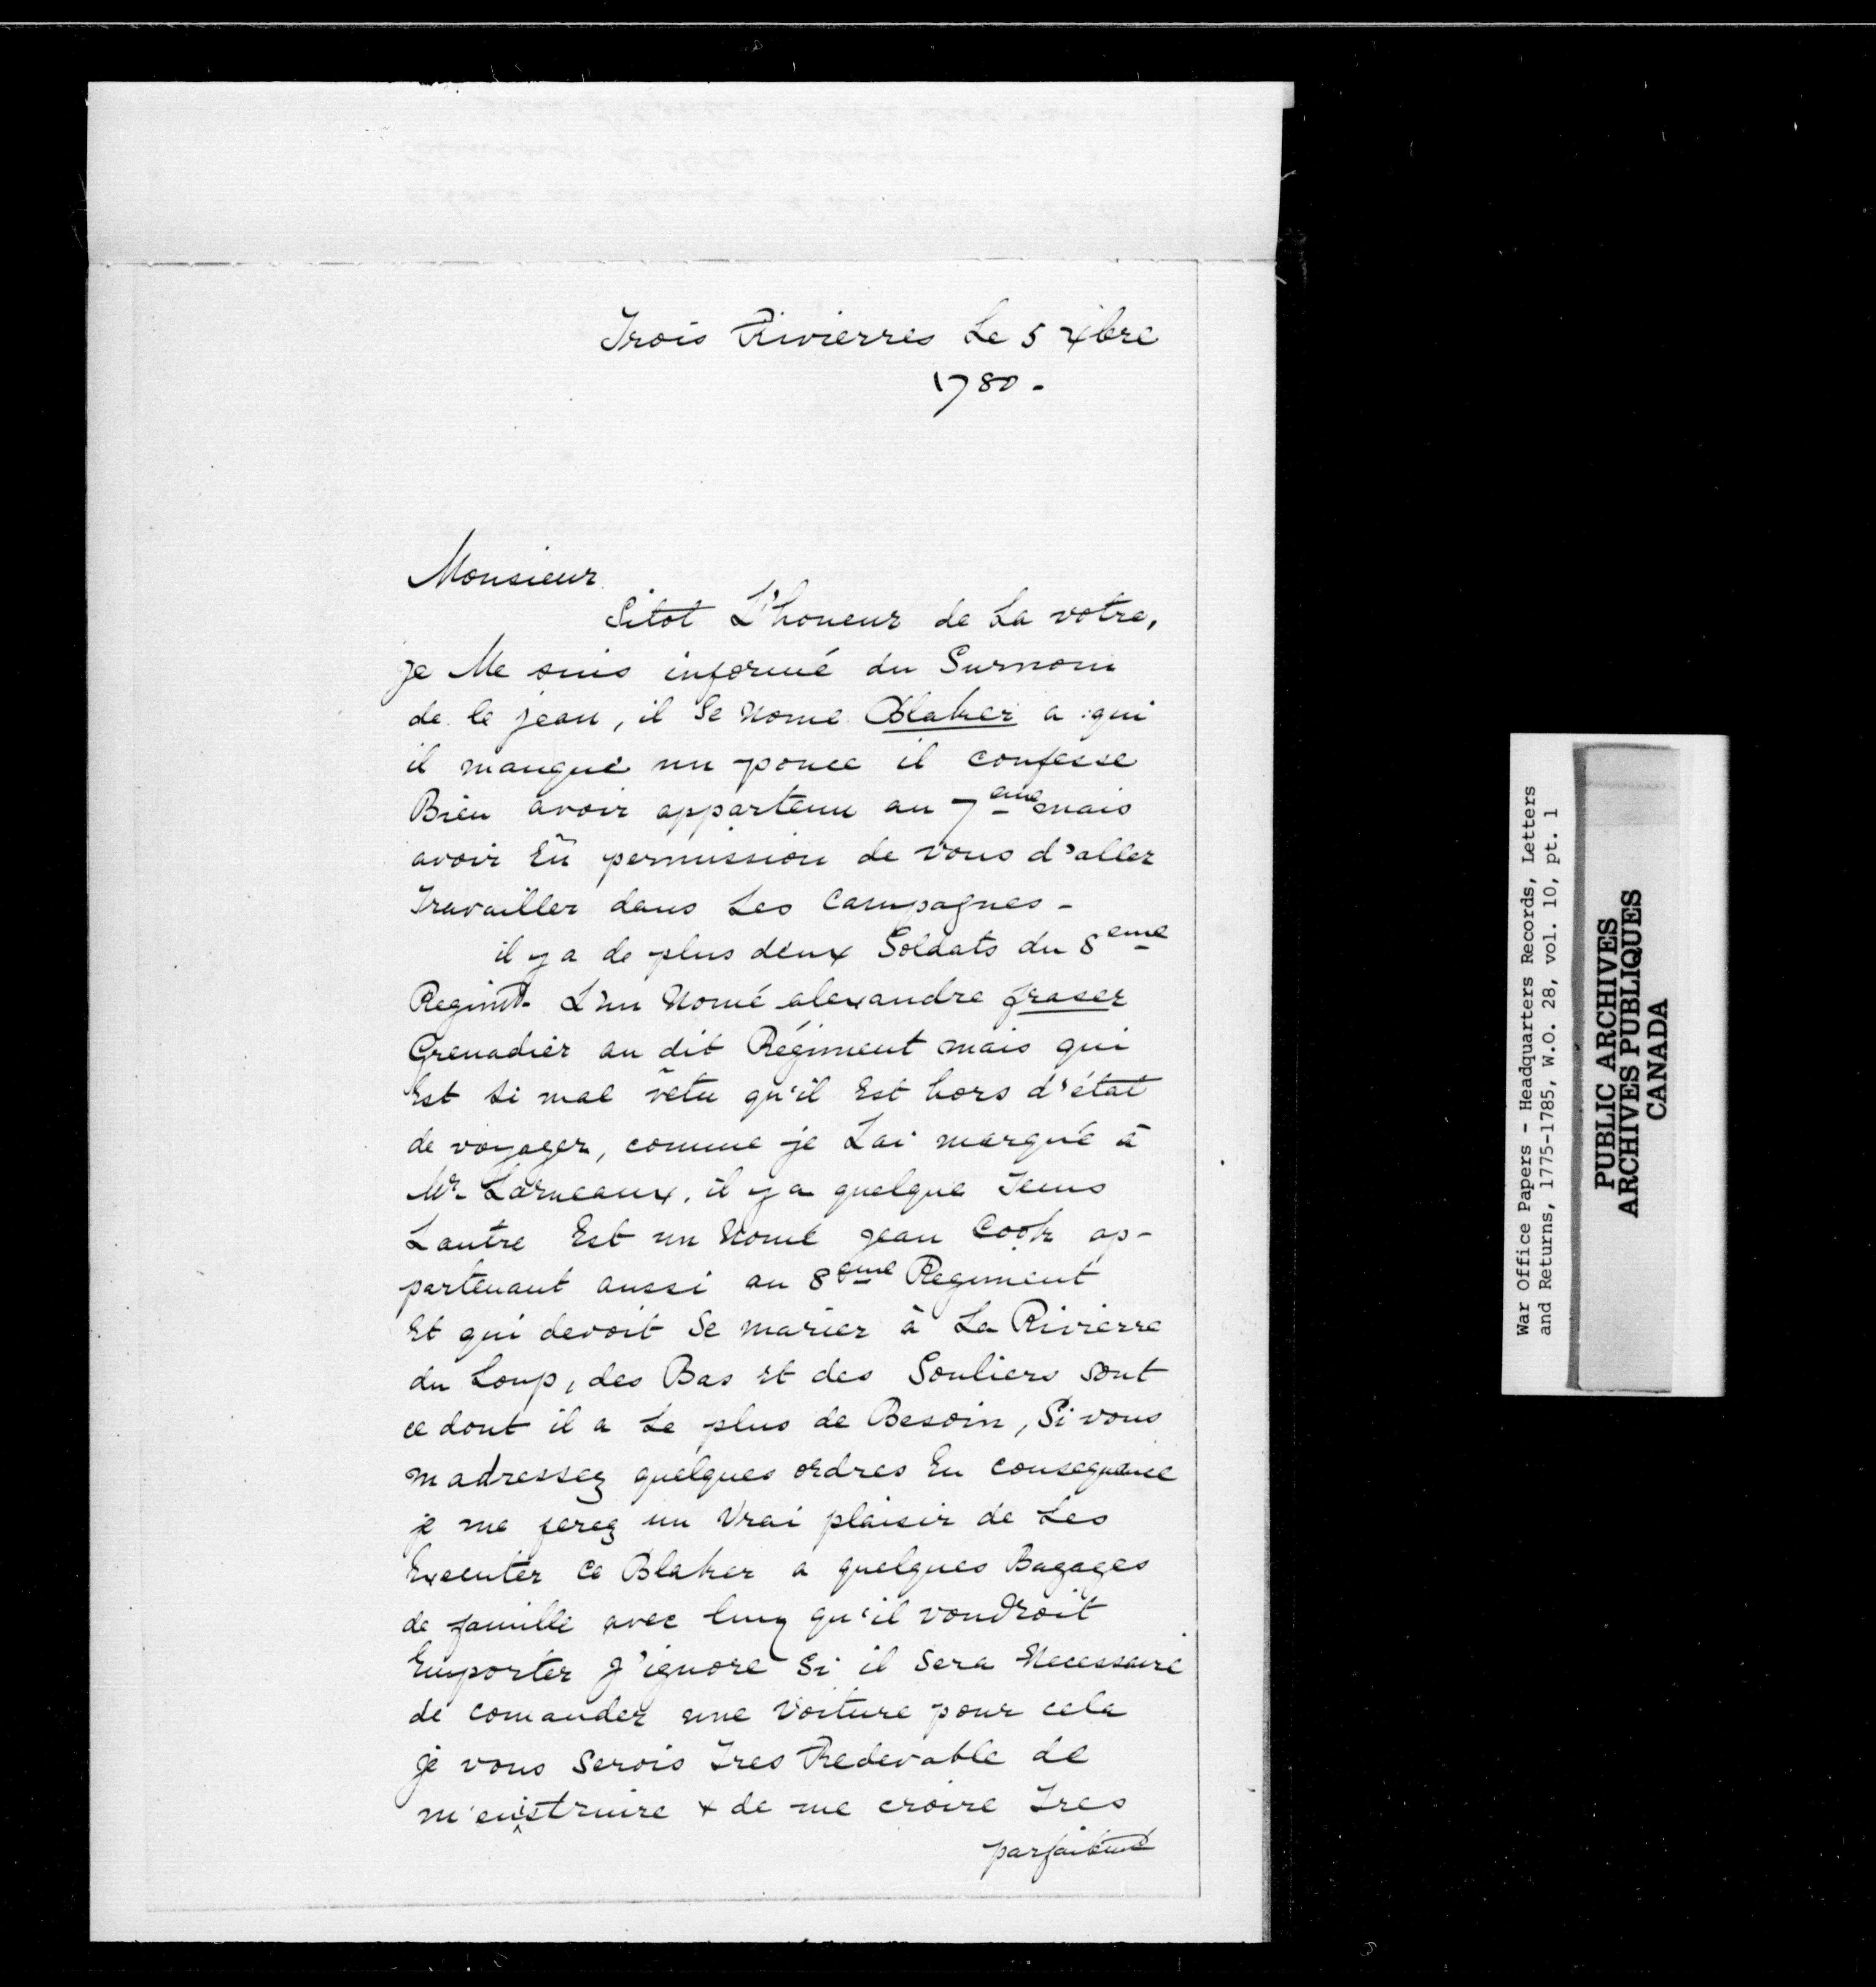 Trois Rivierres Le 5 Xbre
1780.
Monsieur
Sitot L'honeur de La votre,
je Me suis informé du Surnom
de le jean, il Se Nome Blaker a qui
il manque un pouce il confesse
Bien avoir appartenu au 7eme mais
avoir Eü permission de vous d'aller
Travailler dans Les Campagnes -
il y a de plus deux Soldats du 8eme
Regimt. L'un Nomé alexandre fraser
Grenadier au dit Régiment mais qui
Est si mal vetu qu'il Est hors d'état
de voyager, comme je Lai marqué à
Mr. Larneaux, il y a quelque Tems
Lautre Est un Nomé jean Cook ap-
partenant aussi au 8eme Regiment
Et qui devoit Se marier à La Rivierre
du Loup, des Bas Et des Souliers sont
ce dont il a Le plus de Besoin, Si vous
madressez quelques ordres En consequence
je me ferez un Vrai plaisir de Les
Executer Ce Blaker a quelques Bagages
de famille avec luy qu'il voudroit
Emporter J'ignore Si il Sera Necessaire
de comander une Voiture pour cela
je vous Serois Tres Redevable de
m'einstruire & de me croire Tres
parfaitemt
War Office Papers - Headquarters Records, Letters
and Returns, 1775-1785, W.O. 28, vol. 10, pt. 1
PUBLIC ARCHIVES
ARCHIVES PUBLIQUES
CANADA